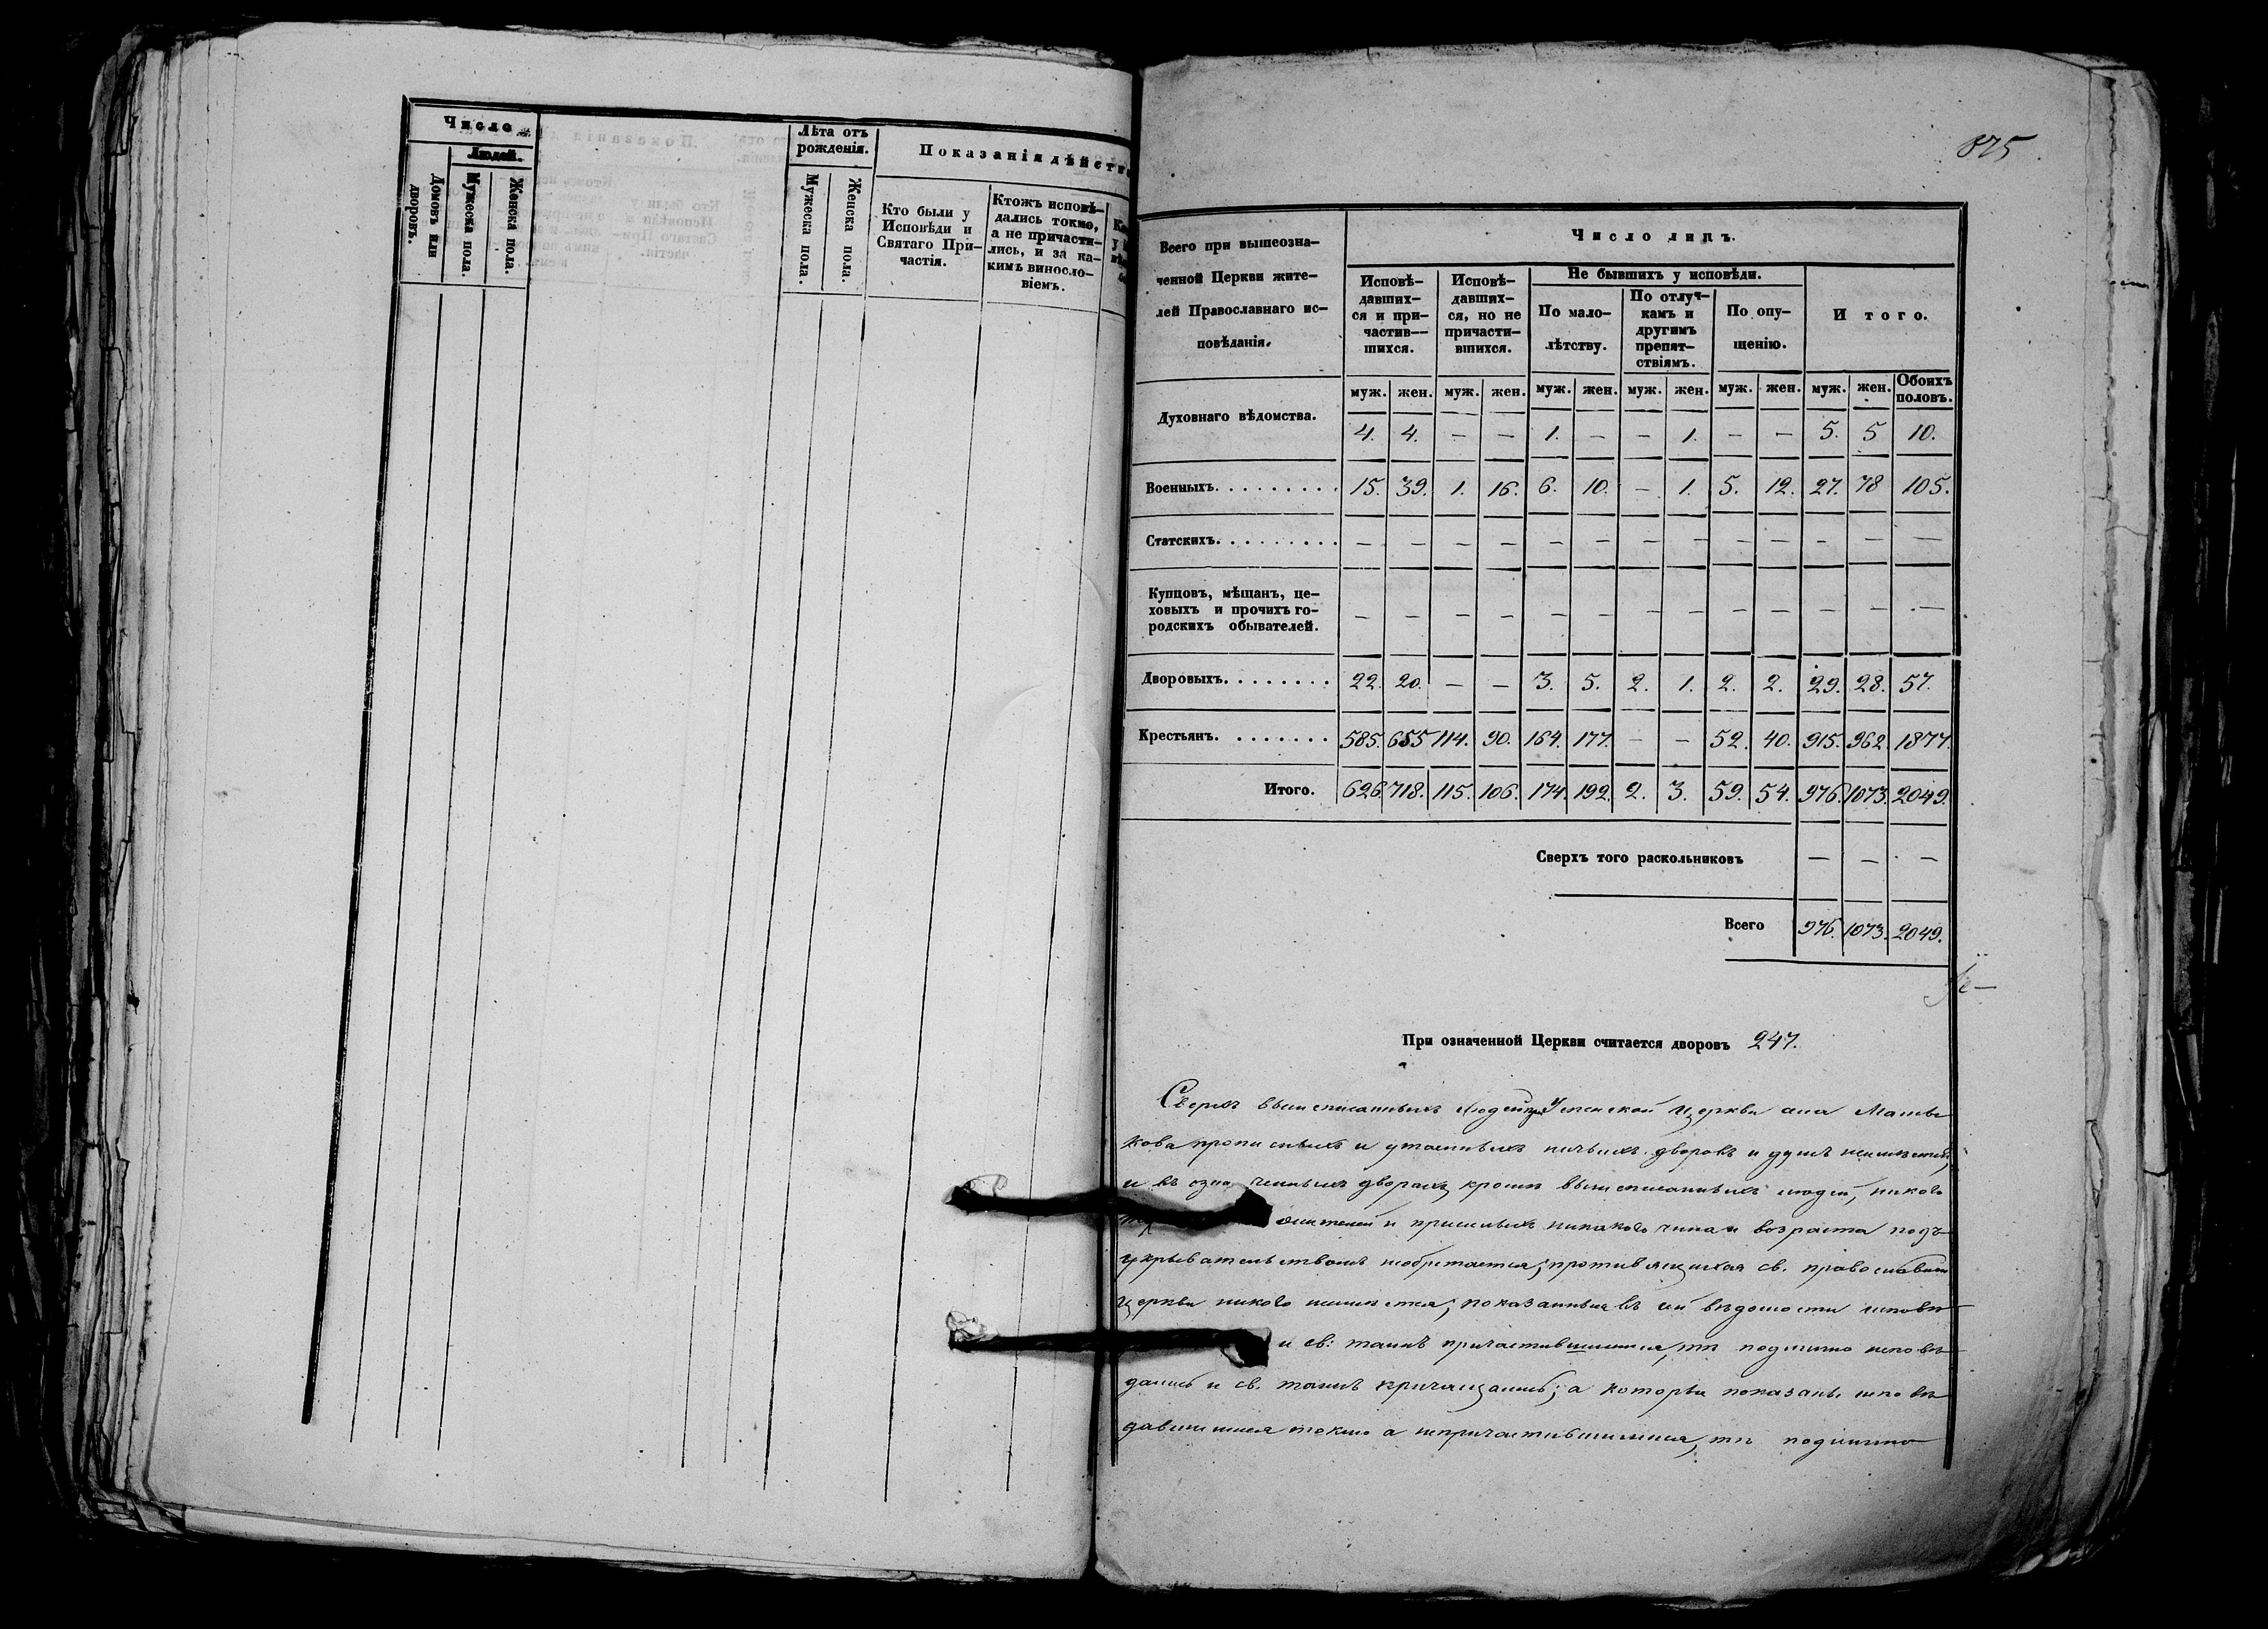 Число
Людей.
Домовъ или дворовъ.
Мужеска пола.
Женска пола.
Лѣта отъ рожденія.
Мужеска пола.
Женска пола.
Показанія дѣйств
Кто были у
Исповѣди и
Святаго При-
частія.
Ктожъ исповѣ-
дались токмо,
а не причасти-
лись, и за ка-
кимъ виносло-
віемъ.
875
Всего при вышеозна-
ченной Церкви жите-
лей Православнаго ис-
повѣданія.
Число лицъ.
Исповѣ-
давших-
ся и при-
частив-
шихся.
Исповѣ-
давших-
ся, но не
причасти-
вшихся.
Не бывшихъ у исповѣди.
По мало-
лѣтству.
По отлуч-
камъ и
другимъ
препят-
ствіямъ.
По опу-
щенію.
Итого.
муж. жен. муж. жен. муж. жен. муж. жен. муж. жен. муж. жен. Обоихъ половъ.
Духовнаго вѣдомства. 4. 4. — — 1. — — 1. — — 5. 5 10.
Военныхъ. 15. 39. 1. 16. 6. 10. — 1. 5. 12. 27. 78 105.
Статскихъ. — — — — — — — — — — — — —
Купцовъ, мѣщанъ, це-
ховыхъ и прочихъ го-
родскихъ обывателей. — — — — — — — — — — — — —
Дворовыхъ. 22. 20. — — 3. 5. 2. 1. 2. 2. 29. 28. 57.
Крестьянъ. 585. 655 114. 90. 164. 177. — — 52. 40. 915. 962. 1877.
Итого. 626. 718. 115. 106. 174. 192. 2. 3. 59. 54. 976. 1073. 2049.
Сверхъ того раскольниковъ — — —
Всего 976. 1073. 2049.
При означенной Церкви считается дворовъ 247.
Сверхъ вышеписанныхъ людей при Успенской церкви села
кова прописныхъ и утаенныхъ ничьихъ дворовъ и душъ неимѣется,
и въ означенныхъ дворахъ кромѣ вышеписанныхъ людей, никого
жителей и пришлыхъ никакого чина и возраста подъ
укрывательствомъ необрѣтается; противящихся св. православной
церкви никого неимѣется; показанные въ сей вѣдомости исповѣ-
и св: таинъ причастившимися, тѣ подлинно исповѣ-
дались и св. таинъ причащались; а которые показаны исповѣ-
давшимися токмо а непричастившимися, тѣ подлинно